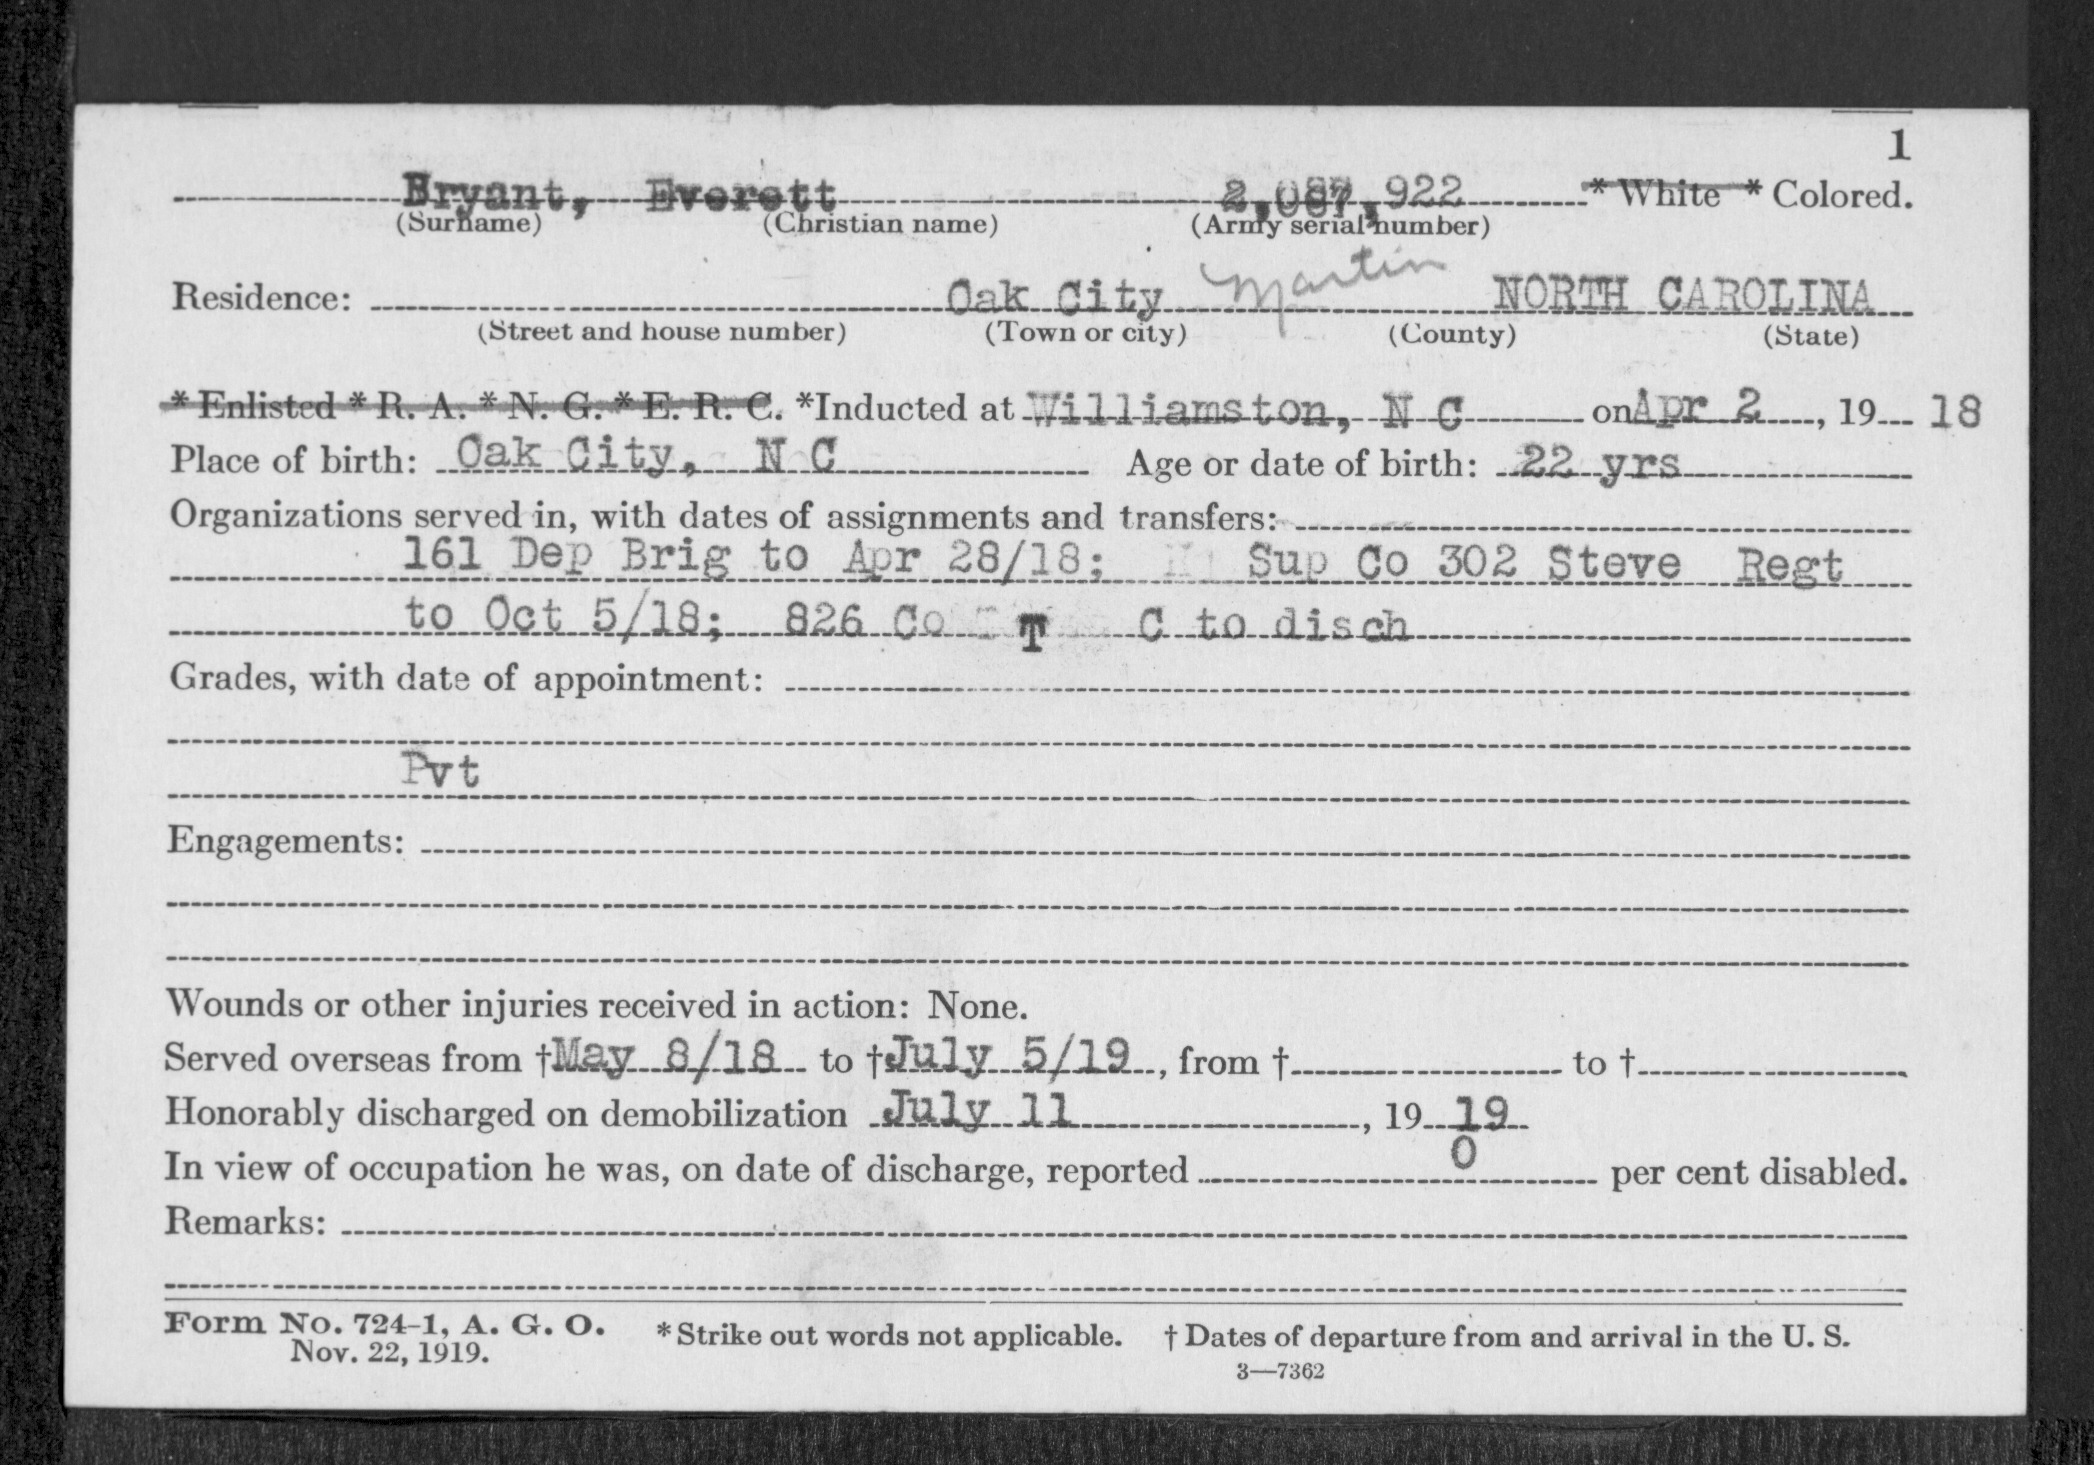 1
Bryant, Everett 2,087,922 * White * Colored.
(Surname) (Christian name) (Army serial number)
Residence: Oak City Martin NORTH CAROLINA
(Street and house number) (Town or city) (County) (State)
* Enlisted * R. A. * N. G. * E. R. C. *Inducted at Williamston, N C on Apr 2, 19 18
Place of birth: Oak City, N C Age or date of birth: 22 yrs
Organizations served in, with dates of assignments and transfers:
161 Dep Brig to Apr 28/18; Sup Co 302 Steve Regt
to Oct 5/18; 826 Co T C to disch
Grades, with date of appointment:
Pvt
Engagements:
Wounds or other injuries received in action: None.
Served overseas from †May 8/18 to †July 5/19, from † to †
Honorably discharged on demobilization July 11, 19 19
In view of occupation he was, on date of discharge, reported 0 per cent disabled.
Remarks:
Form No. 724-1, A. G. O. * Strike out words not applicable. † Dates of departure from and arrival in the U. S.
Nov. 22, 1919.
3—7362